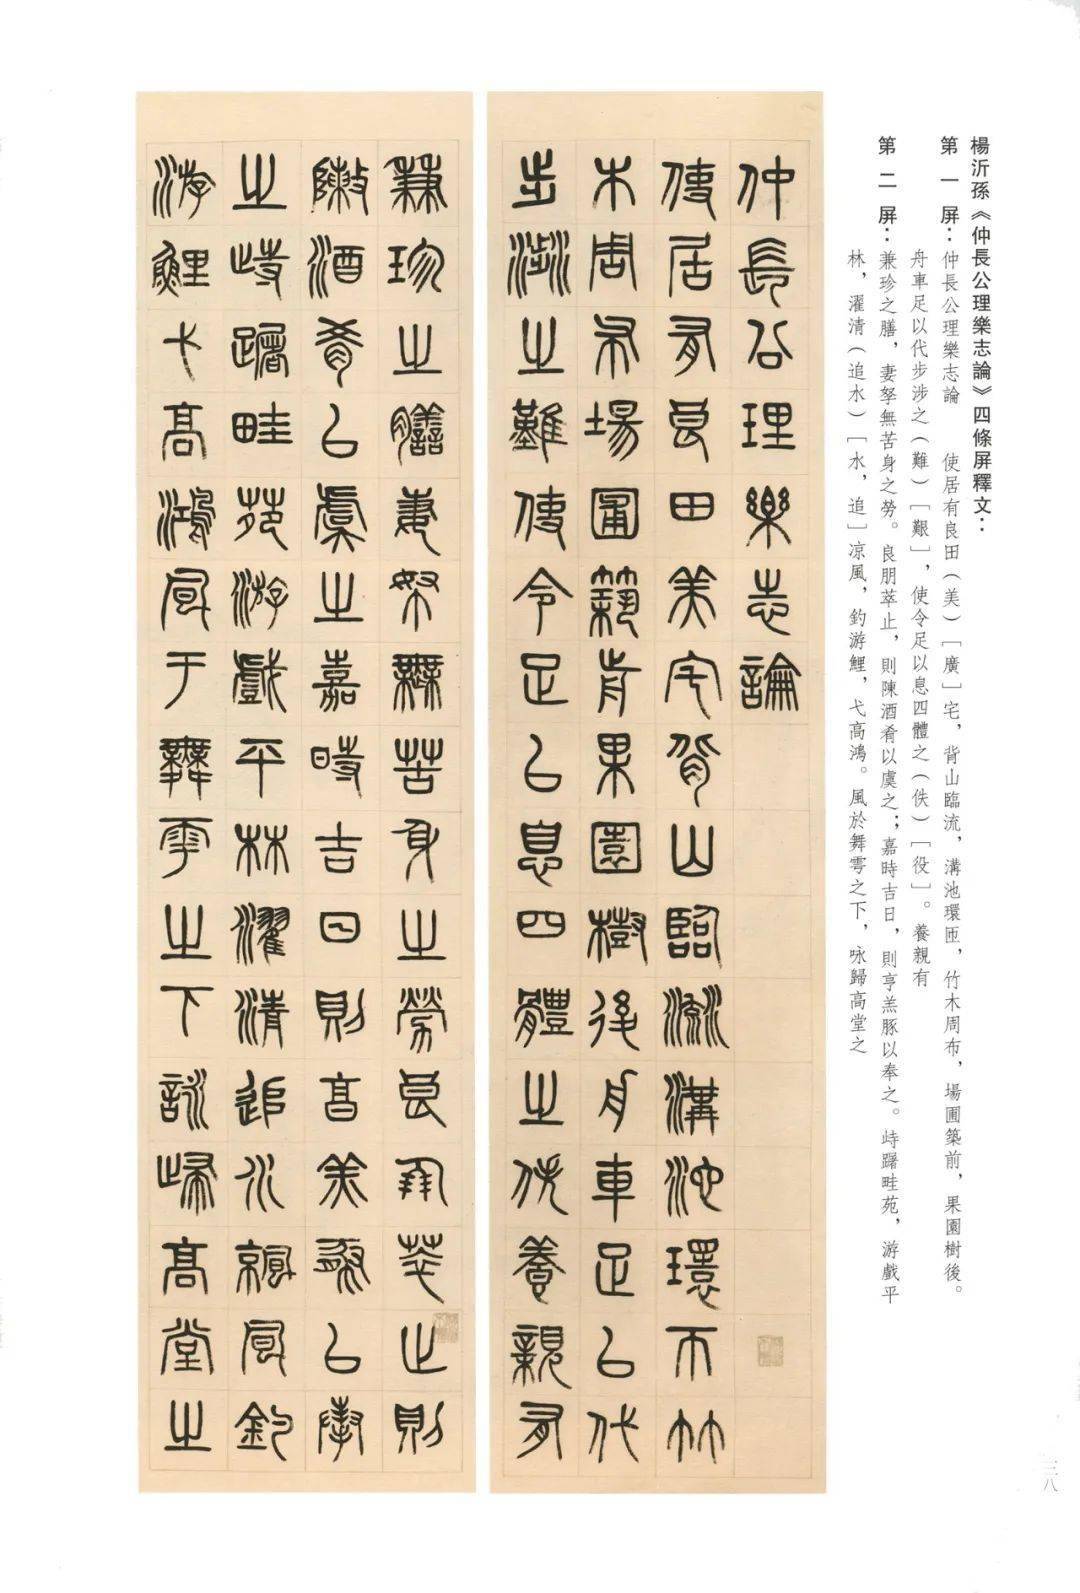 楊沂孫《仲長公理樂志論》四條屏釋文：
第一屏：仲長公理樂志論　使居有良田（美）［廣］宅，背山臨流，溝池環匝，竹木周布，場圃築前，果園樹後。
舟車足以代步涉之（難）［艱］，使令足以息四體之（佚）［役］。養親有
第二屏：兼珍之膳，妻孥無苦身之勞。良朋萃止，則陳酒肴以虞之；嘉時吉日，則亨羔豚以奉之。歭躇畦苑，游戲平
林，濯清（追水）［水，追］凉風，釣游鯉，弋高鴻。風於舞雩之下，咏歸高堂之
仲長公理樂志論
使居有良田美宅背山臨流溝池環帀竹
木周布場圃築前果園樹後舟車足以代
步涉之難使令足以息四體之佚養親有
兼珍之膳妻孥無苦身之勞良朋萃止則
陳酒肴以虞之嘉時吉日則亨羔豚以奉
之歭躇畦苑游戲平林濯清追水凉風釣
游鯉弋高鴻風于舞雩之下詠歸高堂之
三八